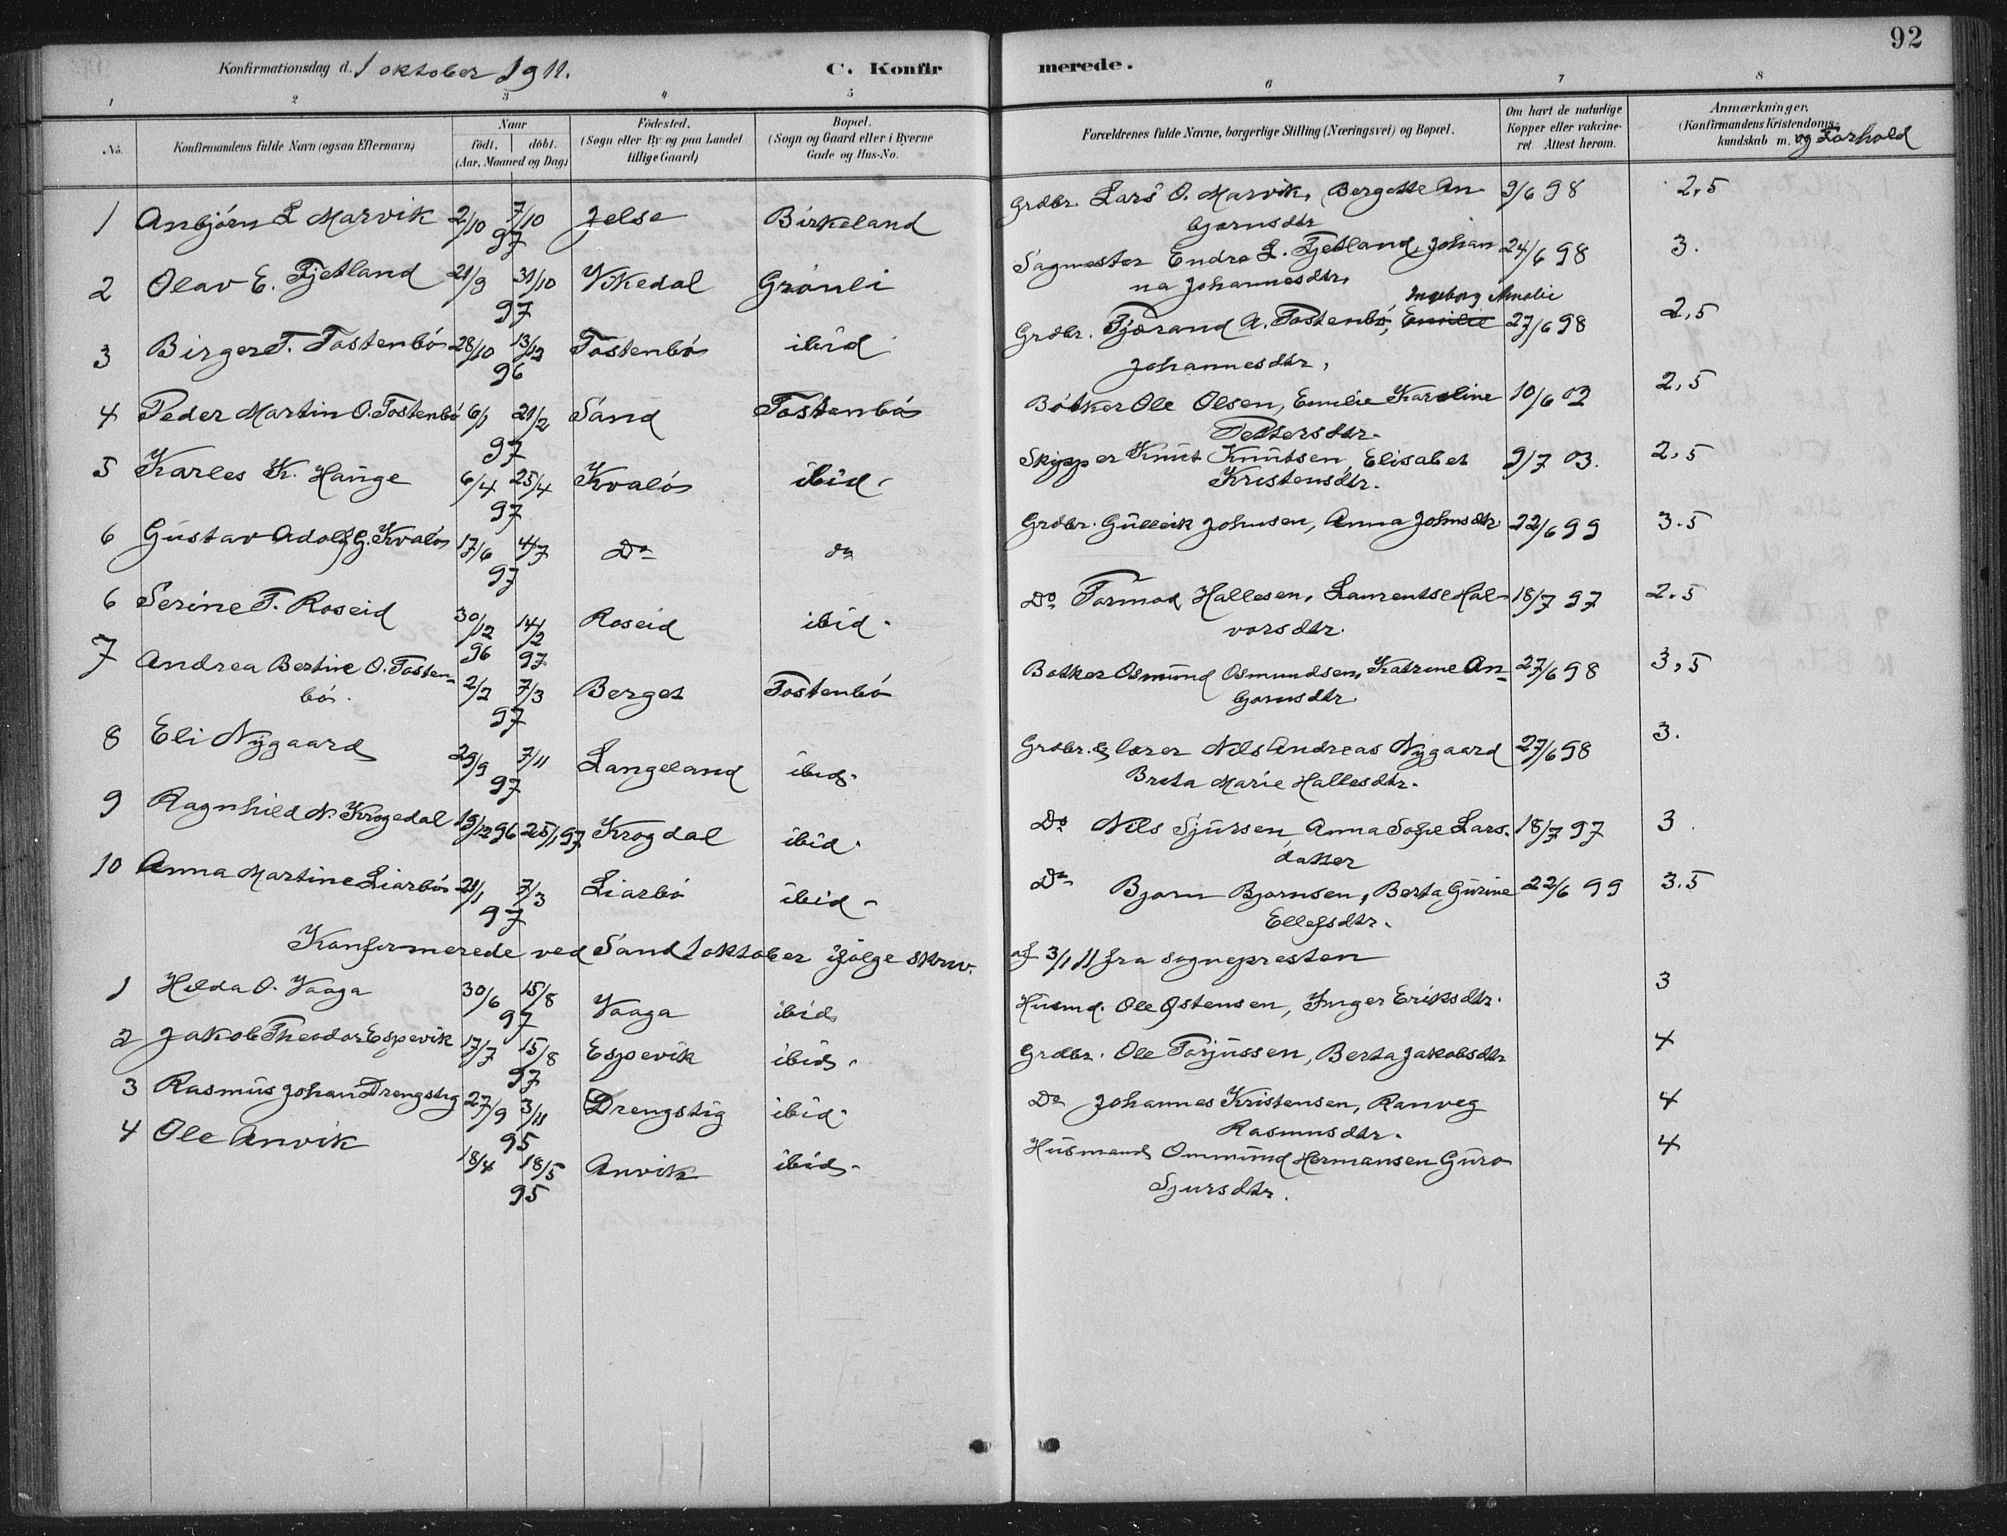 92
Konfirmationsdag d. 1 oktober 1911. C. Konfirmerede.
1 2 3 4 5 6 7 8
No. Konfirmandens fulde Navn (ogsaa Efternavn) Naar født. døbt. (Aar, Maaned og Dag) Fødested. (Sogn eller By og paa Landet tillige Gaard) Bopæl. (Sogn og Gaard eller i Byerne Gade og Hus-No. Forældrenes fulde Navne, borgerlige Stilling (Næringsvei) og Bopæl. Om havt de naturlige Kopper eller vakcineret. Attest herom. Anmærkninger. (Konfirmandens Kristendomskundskab m. og Forhold
1 Anbjørn L Marvik 2/10 7/10 97 Jelse Birkeland Grdbr. Lars O. Marvik, Bergette An 9/6 98 2,5
bjørnsdtr
2 Olav E. Fjetland 21/9 31/10 97 Vikedal Grønli Sagmester Endre L. Fjetland, Johan 24/6 98 3.
na Johannesdtr,
Ingeborg Amalie
3 Birger T. Tostenbø 28/10 13/12 96 Tostenbø ibid Grdbr. Tjærand A. Tostenbø, Emilie 27/6 98 2,5
Johannesdtr,
4 Peder Martin O. Tostenbø 6/1 21/2 97 Sand Tostenbø Bøtker Ole Olsen, Emilie Karoline 10/6 02 2,5
Pettersdtr.
5 Karles K. Hauge 6/4 25/4 97 Kvaløs ibid. Skipper Knut Knutsen, Elisabet 9/7 03. 2,5
Kristensdtr.
6 Gustav Adolf G. Kvaløs 17/6 4/7 97 Do do Grdbr. Gulleik Johnsen, Anna Johnsdtr 22/6 99 3.5
6 Serine T. Roseid 30/12 96 14/2 97 Roseid ibid. Do Tormod Hallesen, Laurentse Hal- 18/7 97 2.5
vorsdtr.
7 Andrea Bertine O. Tosten- 2/2 7/3 97 Berget Tostenbø Bøtker Osmund Osmundsen, Katrine An- 27/6 98 3,5
bø. bjørnsdtr
8 Eli Nygaard 29/9 7/11 97 Langeland ibid. Grdbr. & lærer Nils Andreas Nygaard 27/6 98 3.
Breta Marie Hallesdtr.
9 Ragnhild N. Krogedal 19/12 96 25/1 97 Krogdal ibid. Do Nils Sjursen, Anna Sofie Lars- 18/7 97 3.
datter
10 Anna Martine Liarbø 21/1 7/3 97 Liarbø ibid. Do Bjørn Bjørnsen, Berta Gurine 22/6 99 3.5
Ellefsdtr.
Konfirmerede ved Sand 1 oktober ifølge skriv. af 3/1 11 fra sognepresten
1 Hilda O. Vaaga 30/6 15/8 97 Vaaga ibid Husmd. Ole Østensen, Inger Eriksdtr. 3
2 Jakob Theodor Espevik 17/7 15/8 97 Espevik ibid. Grdbr. Ole Torjussen, Berta Jakobsdtr 4
3 Rasmus Johan Drengstig 27/9 3/11 95 Drengstig ibid. Do Johannes Kristensen, Ranveg 4
Rasmusdtr.
4 Ole Anvik 18/4 18/5 95 Anvik ibid. Husmand Ommund Hermansen Guro 4
Sjursdtr.